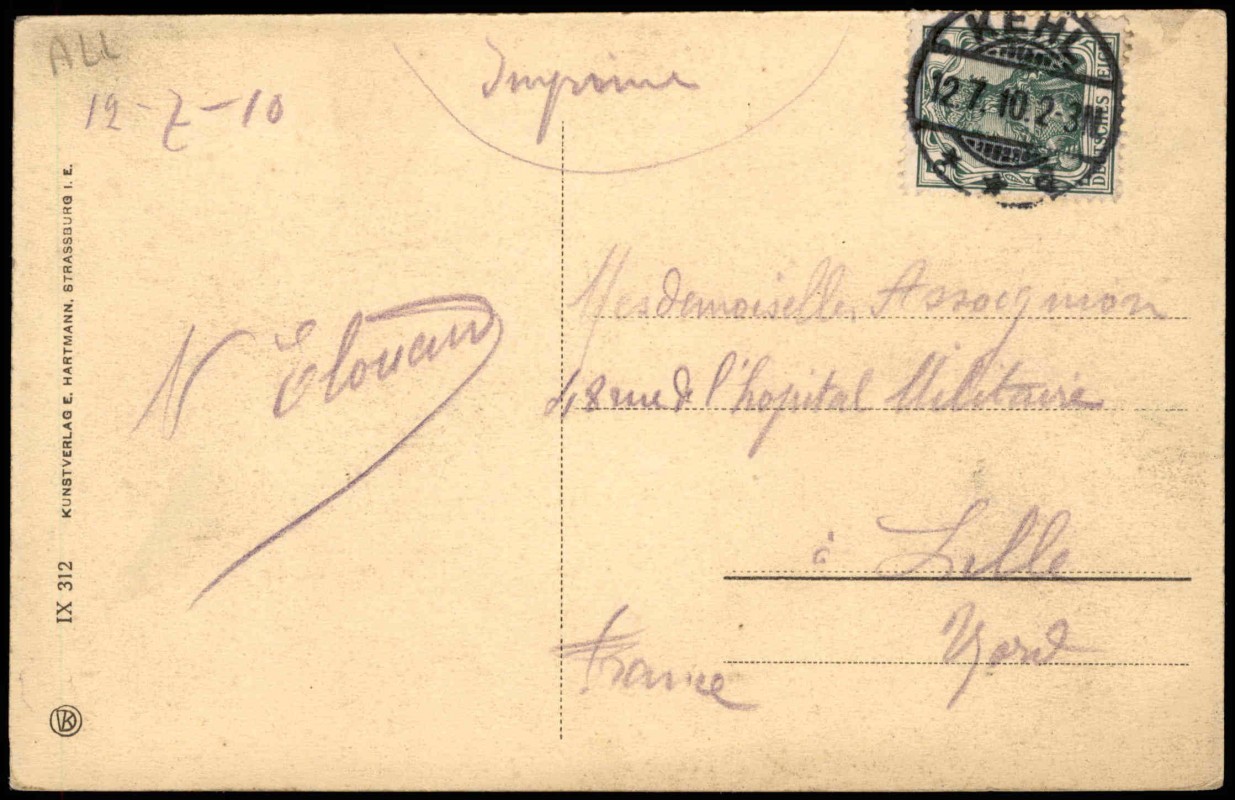 ALL
12-7-10
Imprimé
KEHL
12.7.10.2-3N
* * a
DEUTSCHES REICH
Mesdemoiselles
48 rue de l'hopital Militaire
à Lille
Nord
France
KUNSTVERLAG E. HARTMANN, STRASSBURG I. E.
IX 312